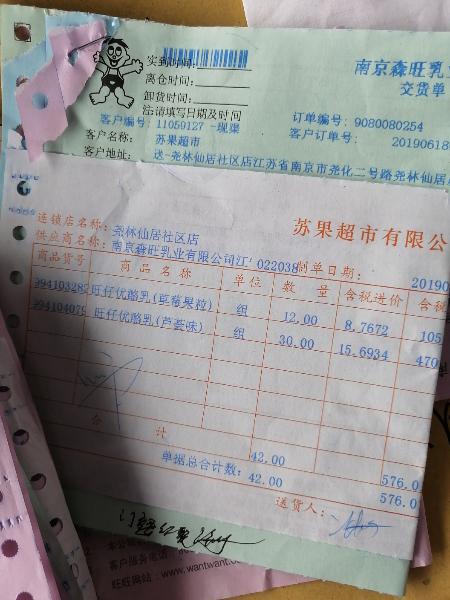 实到时间:
离仓时间:
卸货时间:
注:请填写日期及时间
南京森旺乳业
交货单
客户编号: 11059127 -现渠
订单编号: 9080080254
客户名称: 苏果超市
客户订单号: 20190618
客户地址: 送-尧林仙居社区店江苏省南京市尧化二号路尧林仙居
连锁店名称: 尧林仙居社区店
苏果超市有限公
供应商名称: 南京森旺乳业有限公司江' 022038
制单日期: 20190
商品货号 商品名称 单位 数量 含税进价 含税
394103282 旺仔优酪乳(草莓果粒) 组 12.00 8.7672 105
394104079 旺仔优酪乳(芦荟味) 组 30.00 15.6934 470
合计 42.00 576.0
单据总合计数: 42.00 576.0
送货人:
客户服务电话:
旺旺网站: www.wantwant.co